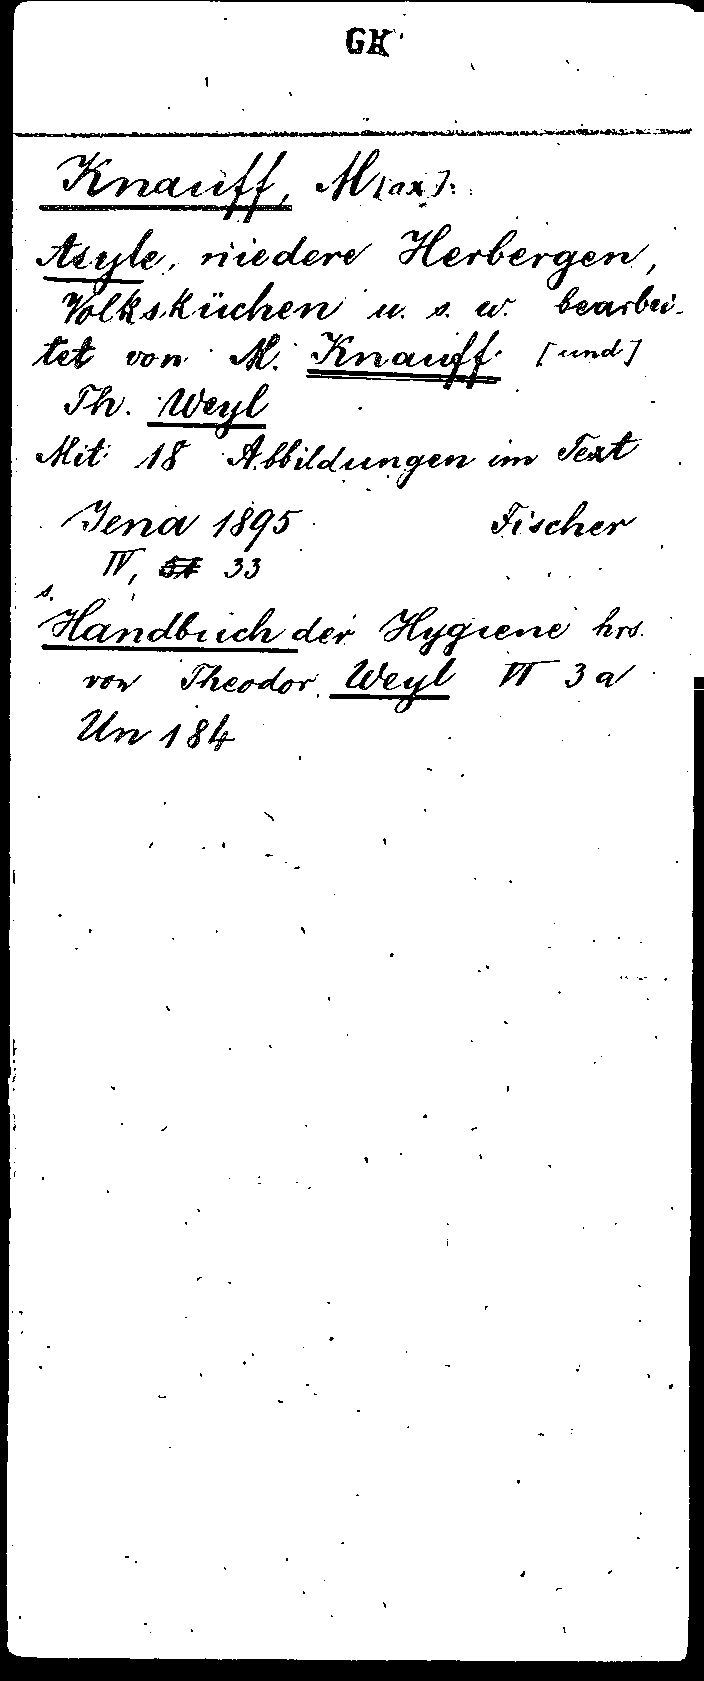 GK
Knauff, M[ax]:
Asyle, niedere Herbergen,
Volksküchen u. s. w. bearbei-
tet von M. Knauff [und]
Th. Weyl
Mit 18 Abbildungen im Text
Jena 1895 Fischer
IV, 33
s.
Handbuch der Hygiene hrs.
von Theodor Weyl VI 3a
Un 184